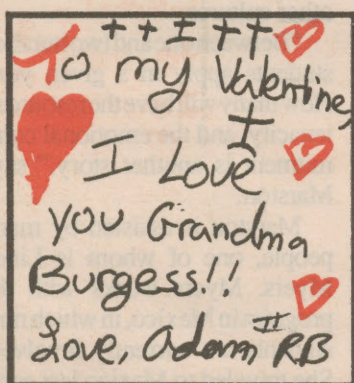 To my Valentine,
I Love
you Grandma
Burgess!!
Love Adam II RB